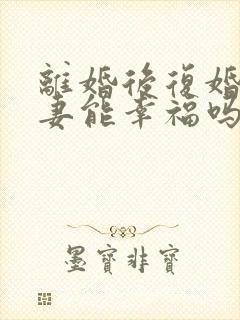 離婚後復婚
妻能幸福吗
墨寶非寶